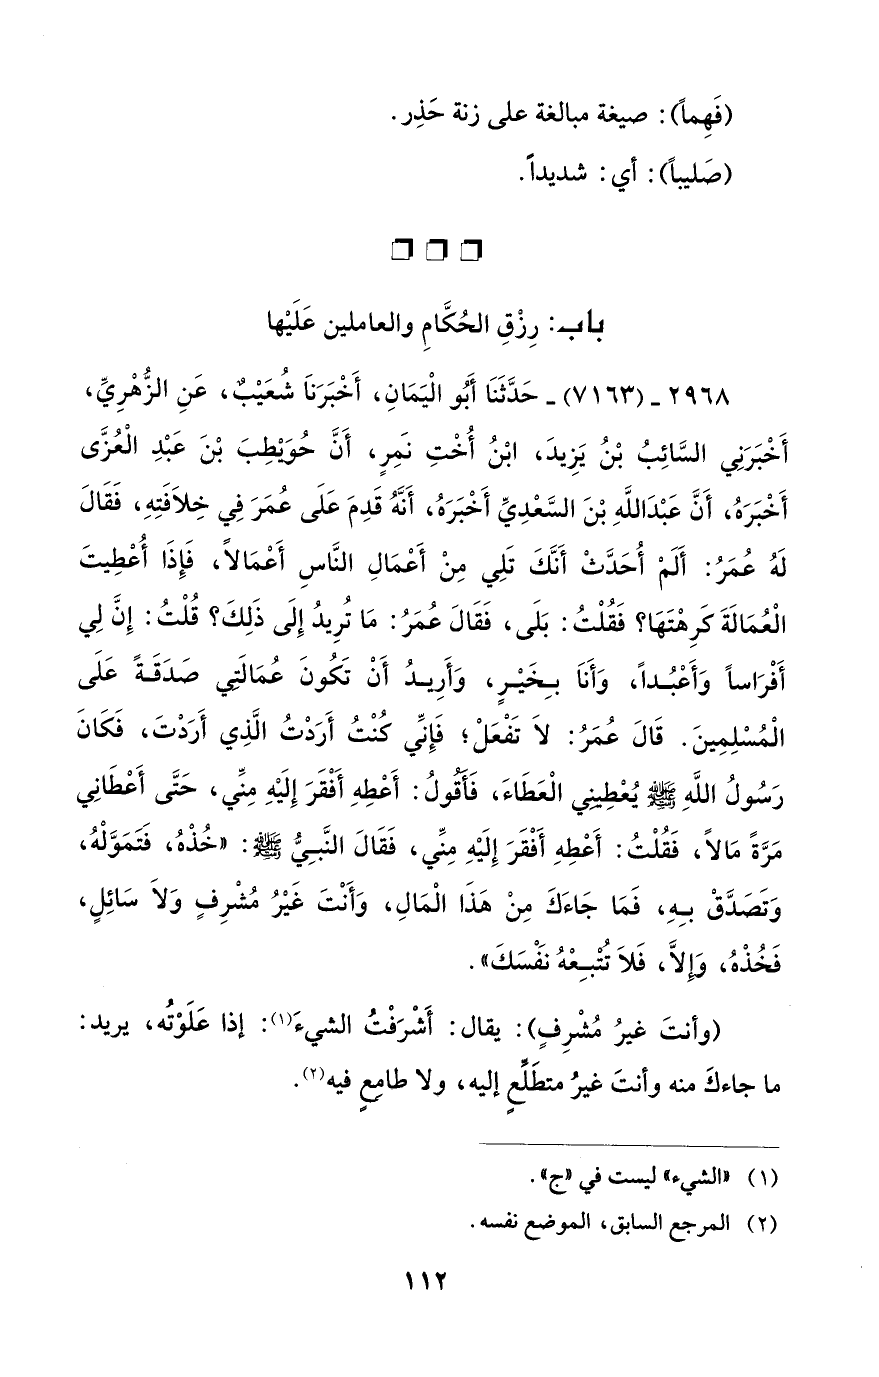 (فَهِماً): صيغة مبالغة على زنة حَذِر.
(صَليباً): أي: شديداً.
باب: رِزْقِ الحُكَّامِ والعاملين عَلَيْها
٢٩٦٨ ـ (٧١٦٣) ـ حَدَّثَنَا أَبُو الْيَمَانِ، أَخْبَرَنَا شُعَيْبٌ، عَنِ الزُّهْرِيِّ،
أَخْبَرَنِي السَّائِبُ بْنُ يَزِيدَ، ابْنُ أُخْتِ نَمِرٍ، أَنَّ حُوَيْطِبَ بْنَ عَبْدِ الْعُزَّى
أَخْبَرَهُ، أَنَّ عَبْدَاللَّهِ بْنَ السَّعْدِيِّ أَخْبَرَهُ، أَنَّهُ قَدِمَ عَلَى عُمَرَ فِي خِلاَفَتِهِ، فَقَالَ
لَهُ عُمَرُ: أَلَمْ أُحَدَّثْ أَنَّكَ تَلِي مِنْ أَعْمَالِ النَّاسِ أَعْمَالاً، فَإِذَا أُعْطِيتَ
الْعُمَالَةَ كَرِهْتَهَا؟ فَقُلْتُ: بَلَى، فَقَالَ عُمَرُ: مَا تُرِيدُ إِلَى ذَلِكَ؟ قُلْتُ: إِنَّ لِي
أَفْرَاساً وَأَعْبُداً، وَأَنَا بِخَيْرٍ، وَأُرِيدُ أَنْ تَكُونَ عُمَالَتِي صَدَقَةً عَلَى
الْمُسْلِمِينَ. قَالَ عُمَرُ: لاَ تَفْعَلْ؛ فَإِنِّي كُنْتُ أَرَدْتُ الَّذِي أَرَدْتَ، فَكَانَ
رَسُولُ اللَّهِ ﷺ يُعْطِينِي الْعَطَاءَ، فَأَقُولُ: أَعْطِهِ أَفْقَرَ إِلَيْهِ مِنِّي، حَتَّى أَعْطَانِي
مَرَّةً مَالاً، فَقُلْتُ: أَعْطِهِ أَفْقَرَ إِلَيْهِ مِنِّي، فَقَالَ النَّبِيُّ ﷺ: «خُذْهُ، فَتَمَوَّلْهُ،
وَتَصَدَّقْ بِهِ، فَمَا جَاءَكَ مِنْ هَذَا الْمَالِ، وَأَنْتَ غَيْرُ مُشْرِفٍ وَلاَ سَائِلٍ،
فَخُذْهُ، وَإِلاَّ، فَلاَ تُتْبِعْهُ نَفْسَكَ».
(وأنتَ غيرُ مُشْرِفٍ): يقال: أَشْرَفْتُ الشيءَ(١): إذا عَلَوْتُه، يريد:
ما جاءكَ منه وأنتَ غيرُ متطلِّعٍ إليه، ولا طامِعٍ فيه(٢).
(١) «الشيء» ليست في «ج».
(٢) المرجع السابق، الموضع نفسه.
١١٢